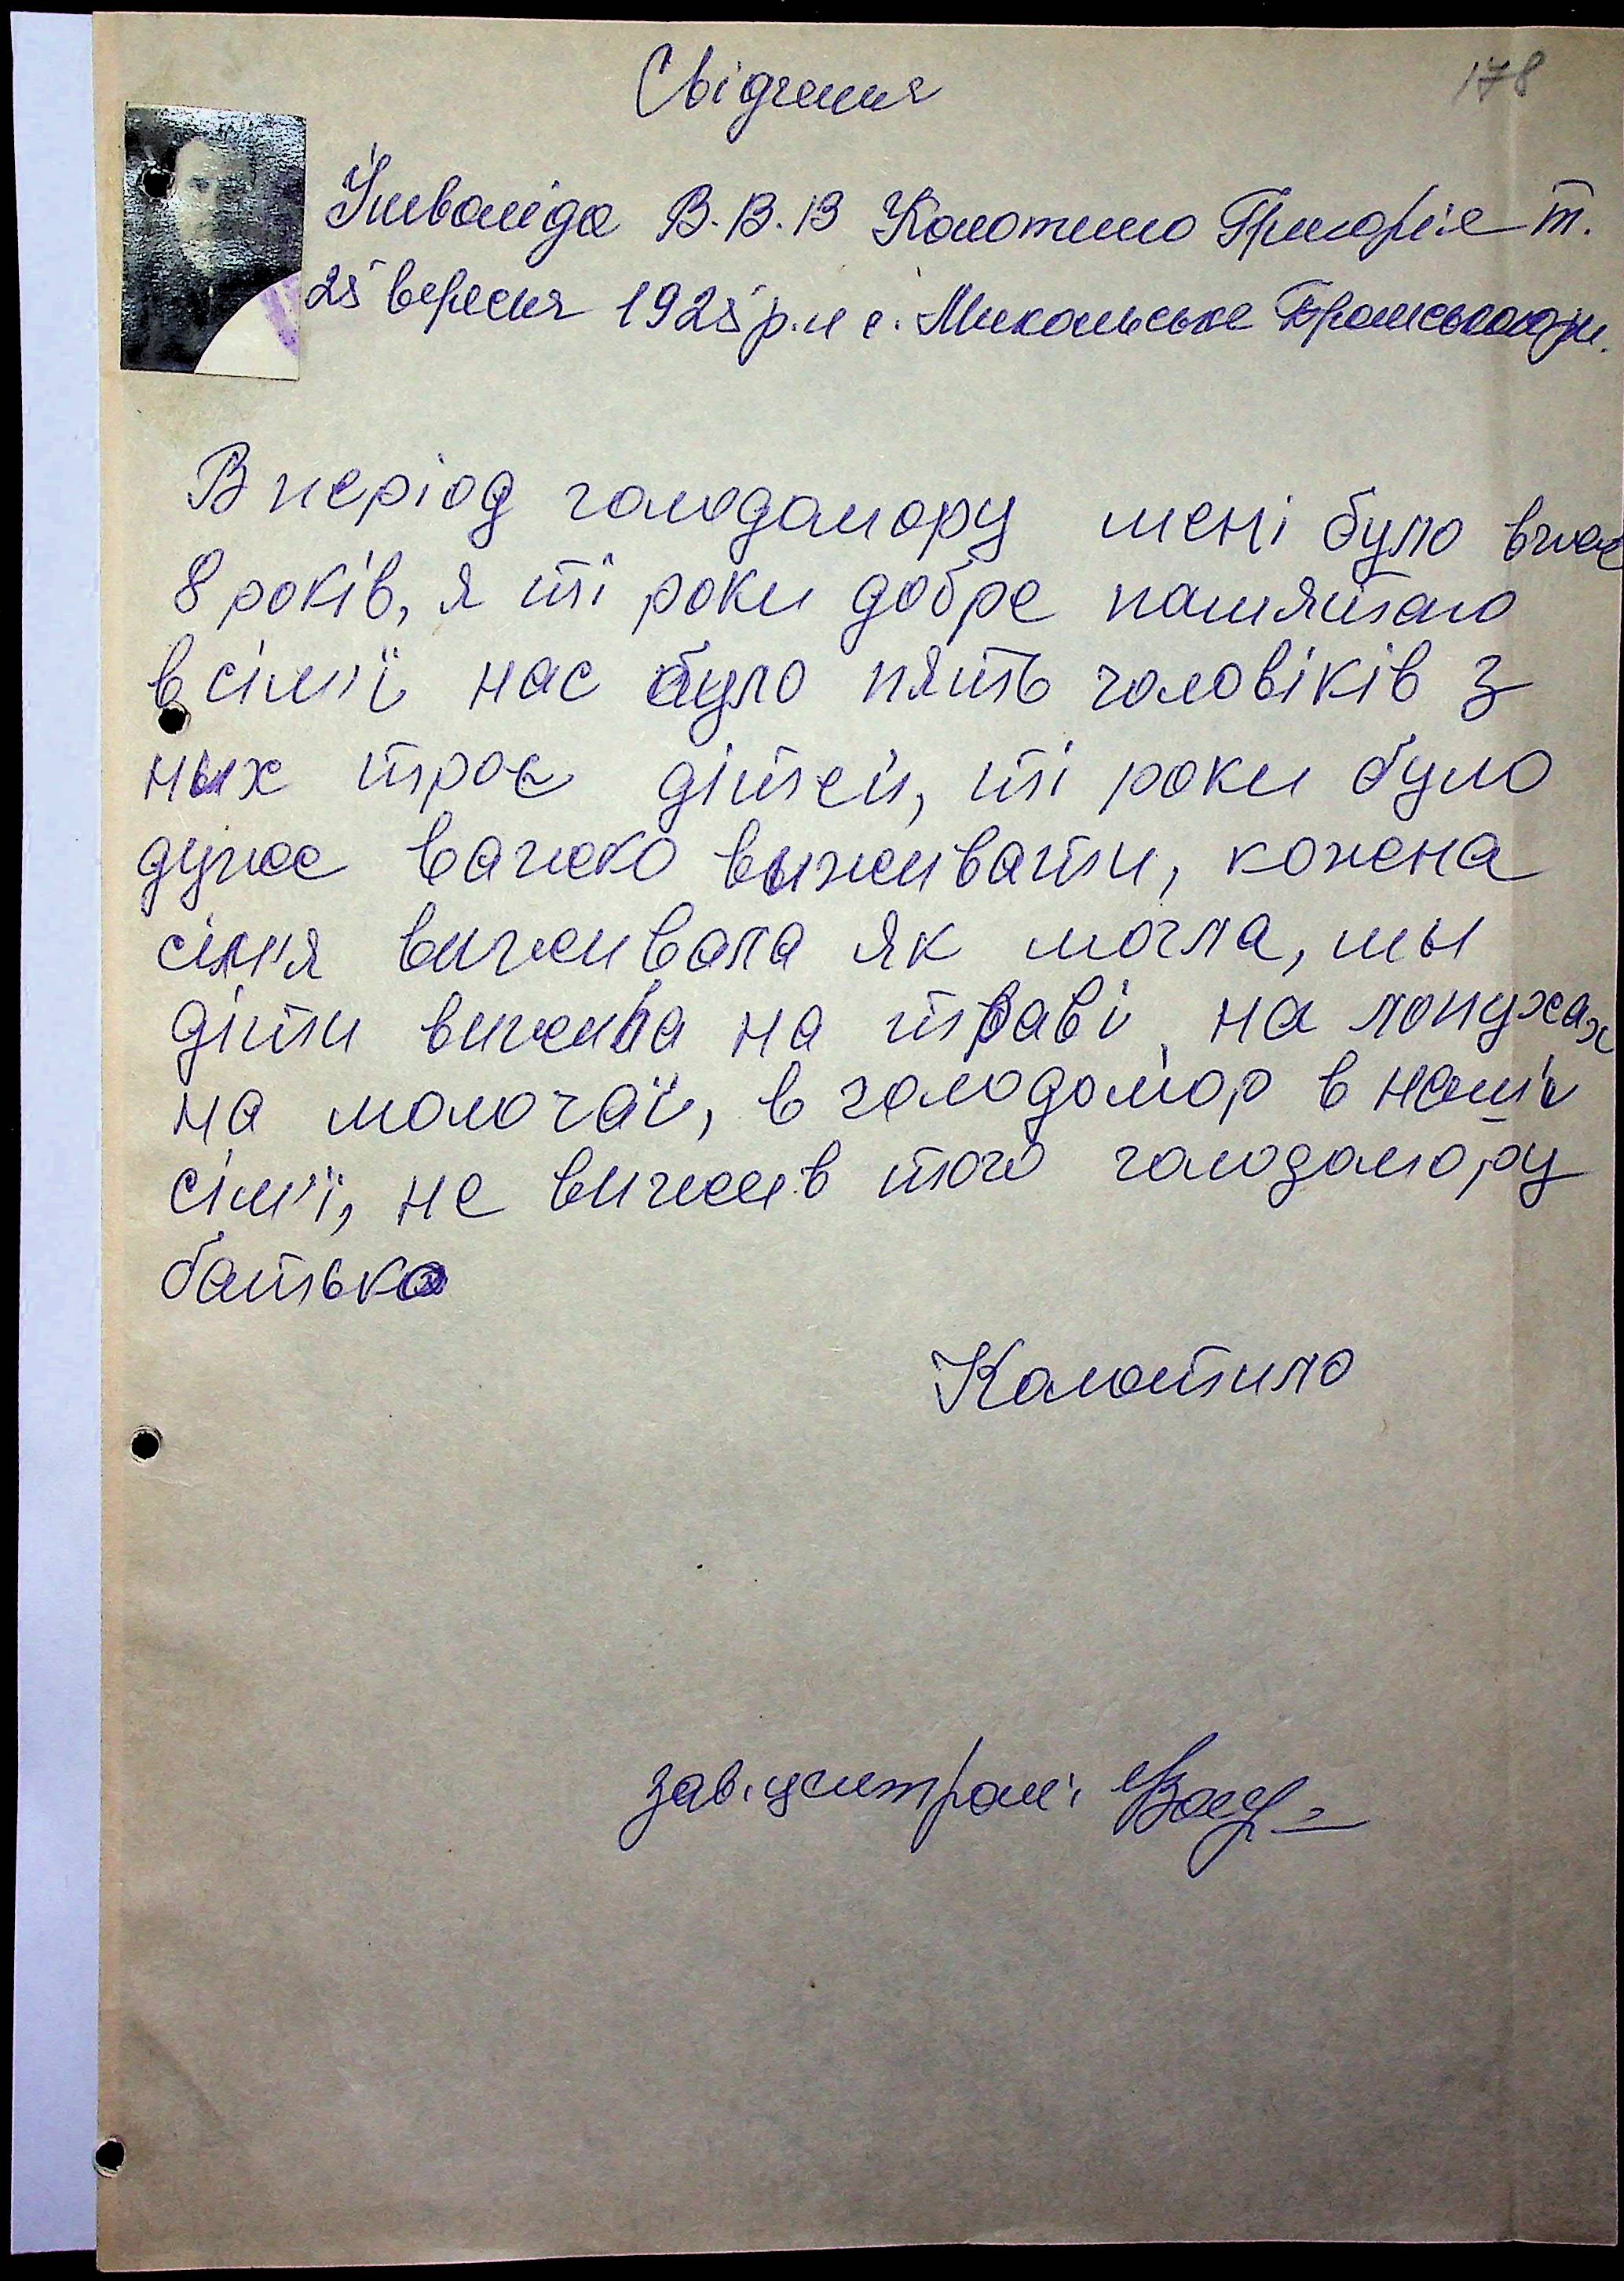 178
Свідчення
Інваліда В.В.В Колотило Григорія Т.
25 вересня 1925 р.н с. Микольське
В період голодомору мені було вже
8 років, я ті роки добре памятаю
в сім'ї нас було пять чоловіків з
ных троє дітей, ті роки було
дуже важко выживати, кожена
сім'я виживала як могла, мы
діти вижила на траві, на лопухах
на молочаї, в голодомор в наший
сім'ї, не вижив того голодомору
батько
Колотило
зав. центром: